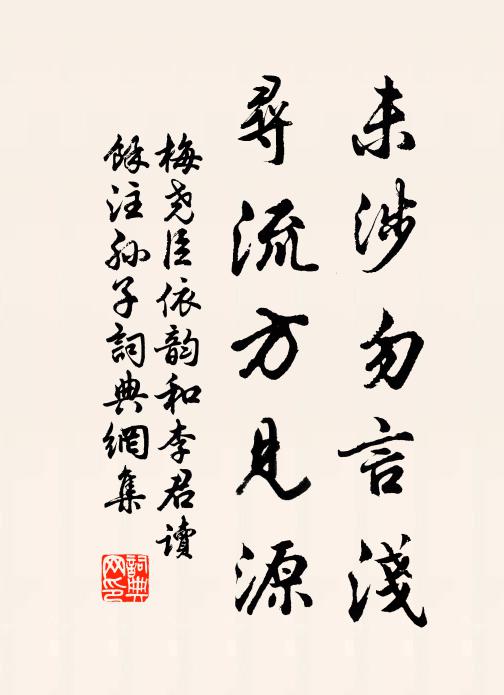 未涉勿言淺
尋流方見源
梅堯臣依韵和李君讀
餘注孙子詞典網集
詞典网印